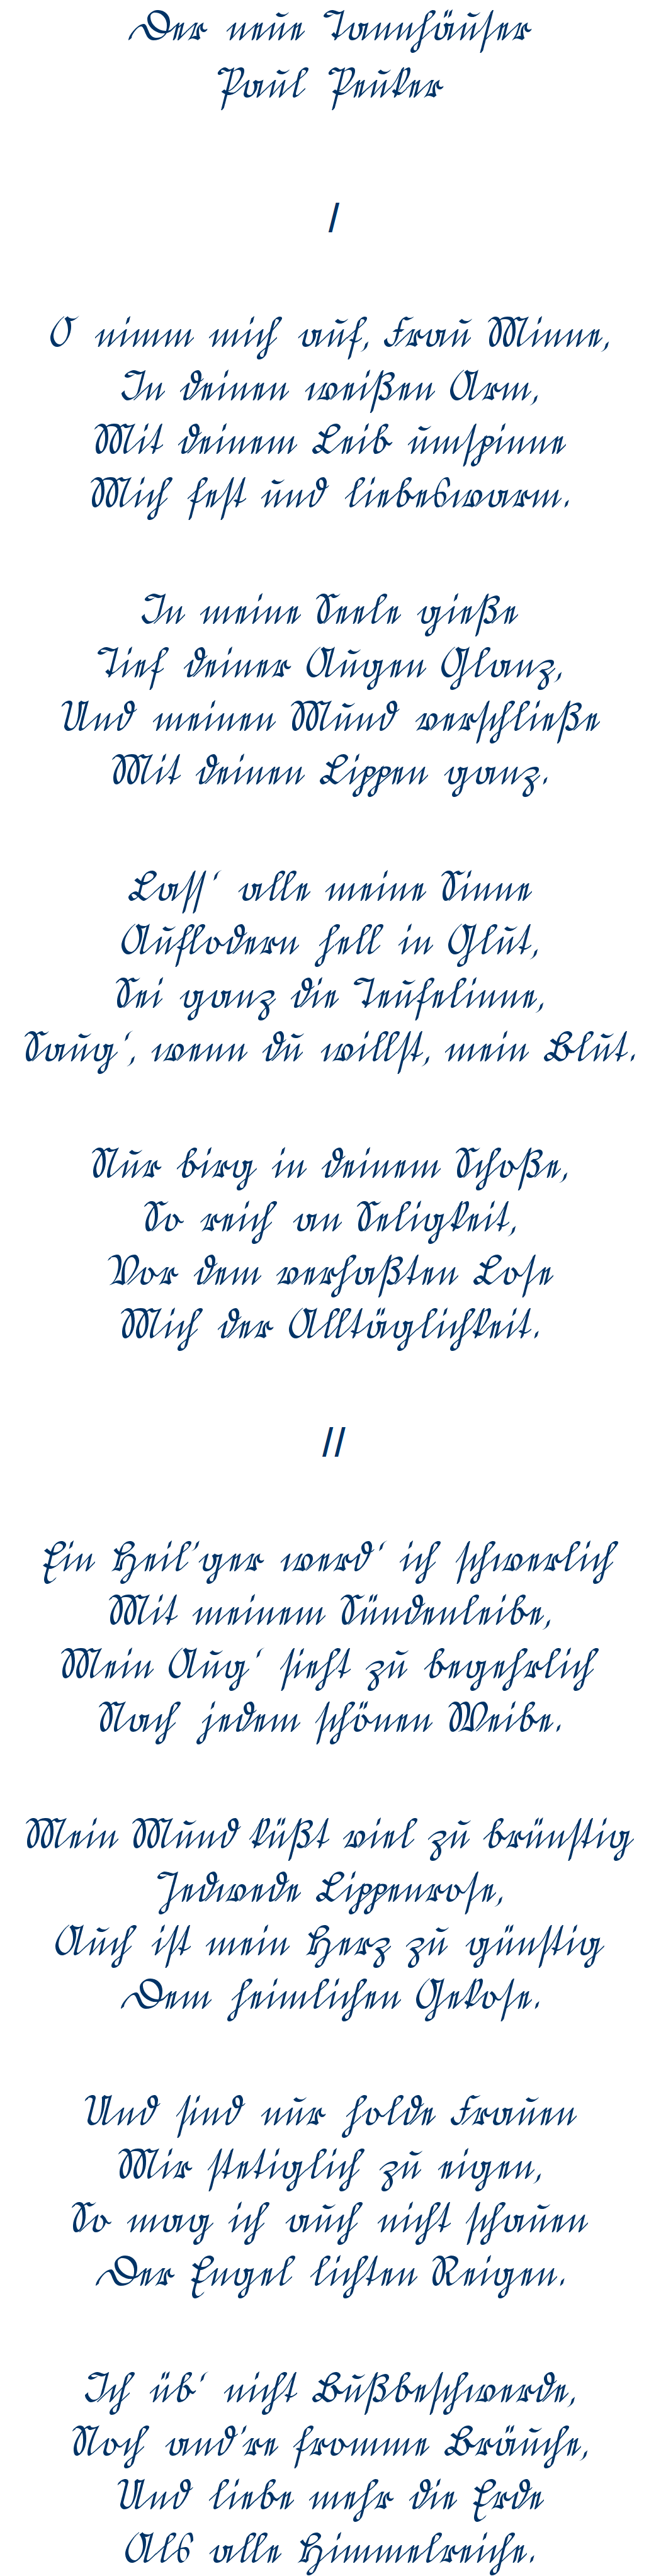 Der neue Tannhäuser
Paul Peuker
I
O nimm mich auf, Frau Minne,
In deinen weißen Arm,
Mit deinem Leib umspinne
Mich fest und liebeswarm.
In meine Seele gieße
Tief deiner Augen Glanz,
Und meinen Mund verschließe
Mit deinen Lippen ganz.
Lass' alle meine Sinne
Auflodern hell in Glut,
Sei ganz die Teufelinne,
Saug', wenn du willst, mein Blut.
Nur birg in deinem Schoße,
So reich an Seligkeit,
Vor dem verhaßten Lose
Mich der Alltäglichkeit.
II
Ein Heil'ger werd' ich schwerlich
Mit meinem Sündenleibe,
Mein Aug' sieht zu begehrlich
Nach jedem schönen Weibe.
Mein Mund küßt viel zu brünstig
Jedwede Lippenrose,
Auch ist mein Herz zu günstig
Dem heimlichen Gekose.
Und sind nur holde Frauen
Mir stetiglich zu eigen,
So mag ich auch nicht schauen
Der Engel lichten Reigen.
Ich üb' nicht Bußbeschwerde,
Noch and're fromme Bräuche,
Und liebe mehr die Erde
Als alle Himmelreiche.